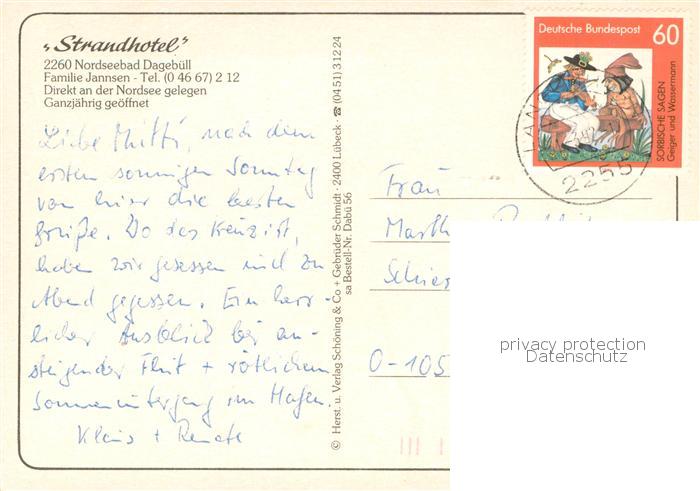 „Strandhotel"
2260 Nordseebad Dagebüll
Familie Jannsen - Tel. (0 46 67) 2 12
Direkt an der Nordsee gelegen
Ganzjährig geöffnet
Liebe Mutti, nach dem
ersten sonnigen Sonntag
von hier die besten
Grüße. Wo das Kreuz ist,
haben wir gesessen und zu
Abend gegessen. Ein herr-
licher Ausblick bei an-
steigender Flut + rötlichem
Sonnenuntergang im Hafen.
Klaus + Renate
© Herst. u. Verlag Schöning & Co + Gebrüder Schmidt · 2400 Lübeck · ☎ (04 51) 3 12 24
sa Bestell-Nr. Dabü 56
Deutsche Bundespost 60
SORBISCHE SAGEN
Geiger und Wassermann
2255
Frau
Marth
Schier
O-105
privacy protection
Datenschutz